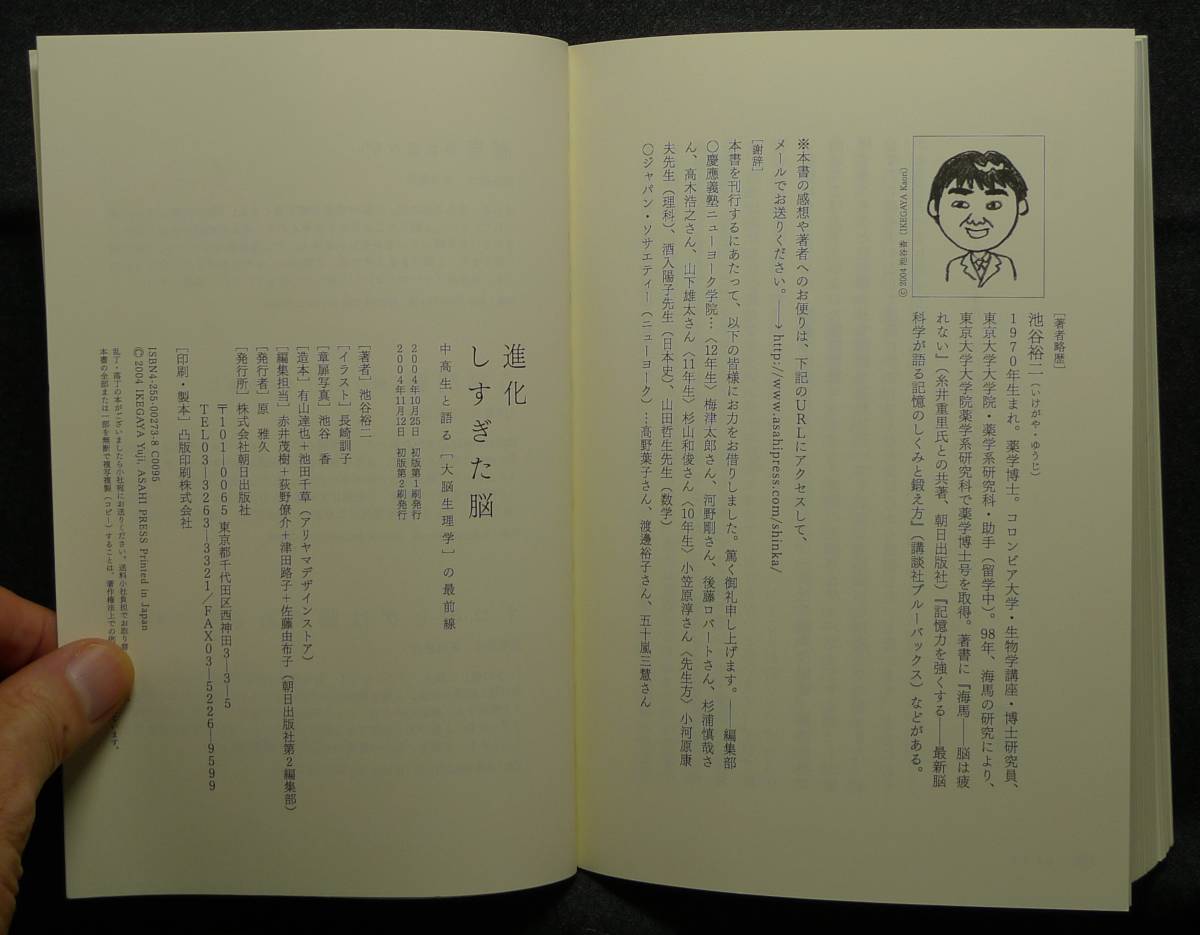 © 2004 池谷香〔IKEGAYA Kaori〕
［著者略歴］
池谷裕二（いけがや・ゆうじ）
1970年生まれ。薬学博士。コロンビア大学・生物学講座・博士研究員、
東京大学大学院・薬学系研究科・助手（留学中）。98年、海馬の研究により、
東京大学大学院薬学系研究科で薬学博士号を取得。著書に『海馬――脳は疲
れない』（糸井重里氏との共著、朝日出版社）『記憶力を強くする――最新脳
科学が語る記憶のしくみと鍛え方』（講談社ブルーバックス）などがある。
※本書の感想や著者へのお便りは、下記のURLにアクセスして、
メールでお送りください。――→ http://www.asahipress.com/shinka/
［謝辞］
本書を刊行するにあたって、以下の皆様にお力をお借りしました。篤く御礼申し上げます。――編集部
○慶應義塾ニューヨーク学院…〈12年生〉梅津太郎さん、河野剛さん、後藤ロバートさん、杉浦慎哉さ
ん、高木浩之さん、山下雄太さん〈11年生〉杉山和俊さん〈10年生〉小笠原淳さん〈先生方〉小河原康
夫先生（理科）、酒入陽子先生（日本史）、山田哲生先生（数学）
○ジャパン・ソサエティー（ニューヨーク）…高野葉子さん、渡邊裕子さん、五十嵐三慧さん
進化
しすぎた脳
中高生と語る［大脳生理学］の最前線
2004年10月25日 初版第1刷発行
2004年11月12日 初版第2刷発行
［著者］池谷裕二
［イラスト］長崎訓子
［章扉写真］池谷 香
［造本］有山達也＋池田千草（アリヤマデザインストア）
［編集担当］赤井茂樹＋荻野僚介＋津田路子＋佐藤由布子（朝日出版社第2編集部）
［発行者］原 雅久
［発行所］株式会社朝日出版社
〒101―0065 東京都千代田区西神田3―3―5
TEL03―3263―3321／FAX03―5226―9599
［印刷・製本］凸版印刷株式会社
ISBN4-255-00273-8 C0095
© 2004 IKEGAYA Yuji, ASAHI PRESS Printed in Japan
乱丁・落丁の本がございましたら小社宛にお送りください。送料小社負担でお取り替
本書の全部または一部を無断で複写複製（コピー）することは、著作権法上での
います。